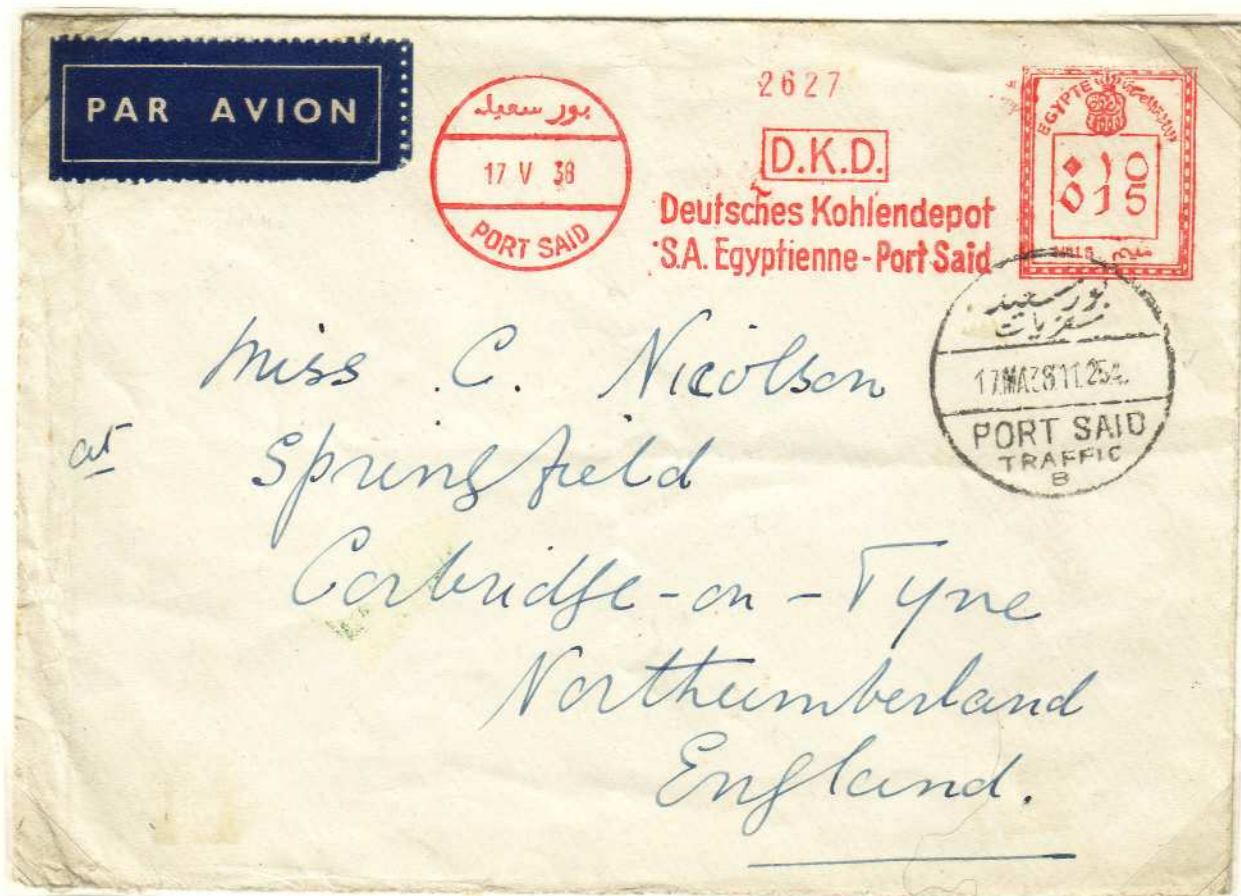 PAR AVION
بور سعيد
17 V 38
PORT SAID
2627
D.K.D.
Deutsches Kohlendepot
S.A. Egyptienne - Port Said
EGYPTE
٠١٥
015
MILLS
بور سعيد
سفريات
17.MA38 11.25
PORT SAID
TRAFFIC
B
Miss C. Nicolson
at Springfield
Corbridge-on-Tyne
Northumberland
England.